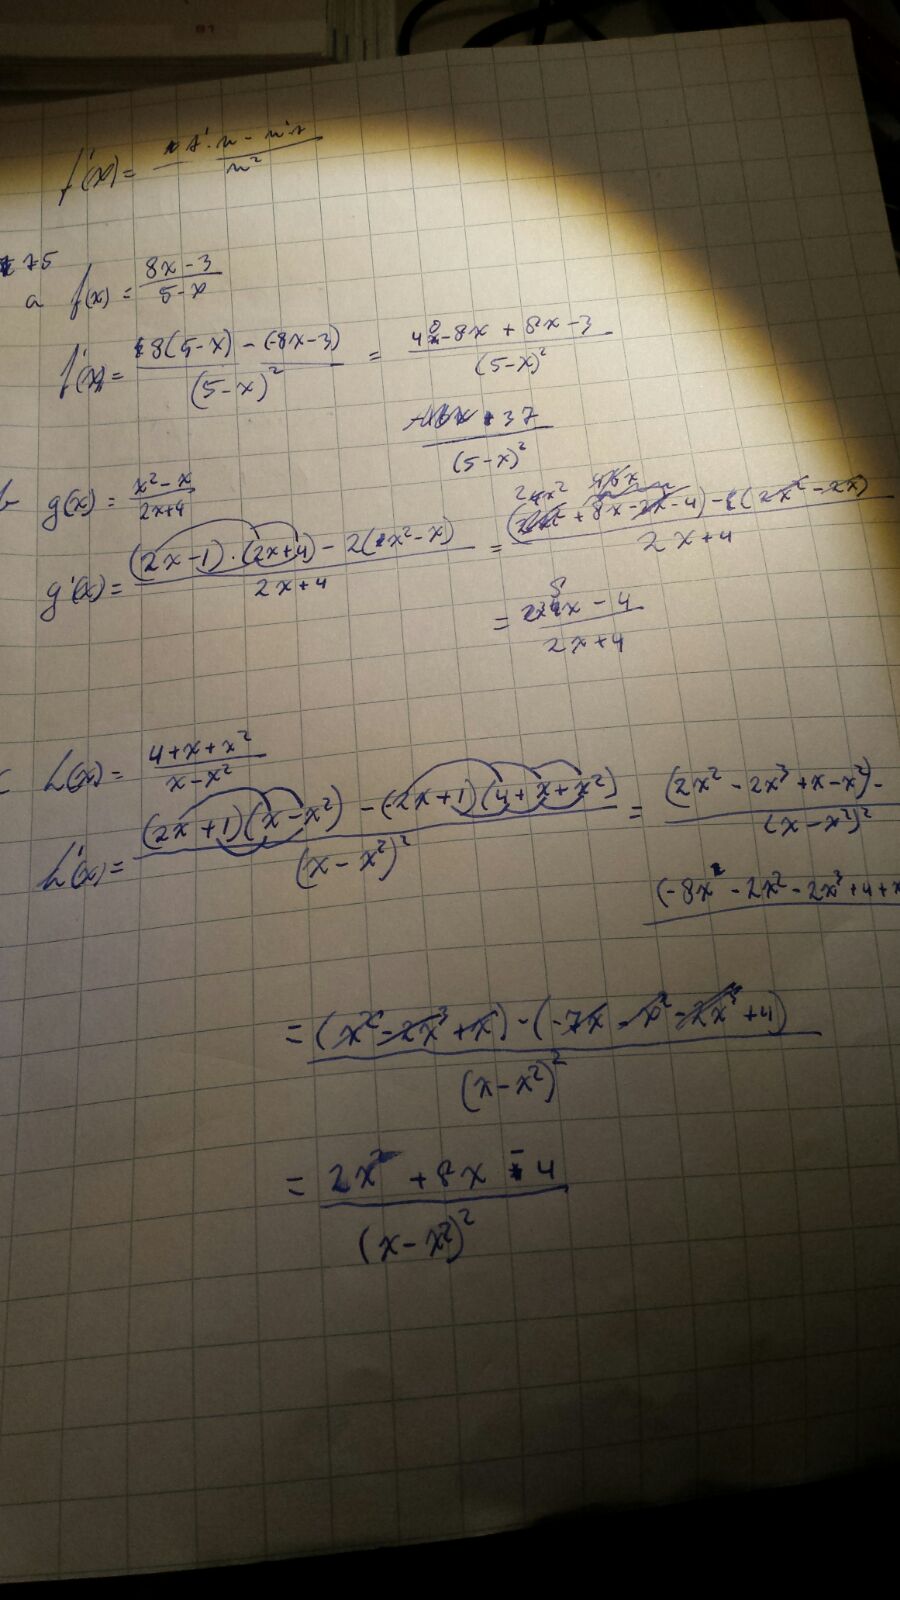 f'(x) = t'·n - n'·t / n²
75
a f(x) = 8x - 3 / 5 - x
f'(x) = 8(5-x) - (-8x-3) / (5-x)² = 40 - 8x + 8x - 3 / (5-x)²
37 / (5-x)²
b g(x) = x² - x / 2x+4
g'(x) = (2x-1)·(2x+4) - 2(x²-x) / 2x+4 = + 8x - 2x - 4) - (2x² - 2x) / 2x+4
= - 4 / 2x+4
c h(x) = 4+x+x² / x-x²
h'(x) = (2x+1)(x-x²) - (-2x+1)(4+x+x²) / (x-x²)² = (2x² - 2x³ + x - x²) - / (x-x²)²
(-8x - 2x² - 2x³ + 4 + x
= (x² - 2x³ + x) - (-7x - x² - 2x³ + 4) / (x-x²)²
= 2x² + 8x - 4 / (x-x²)²